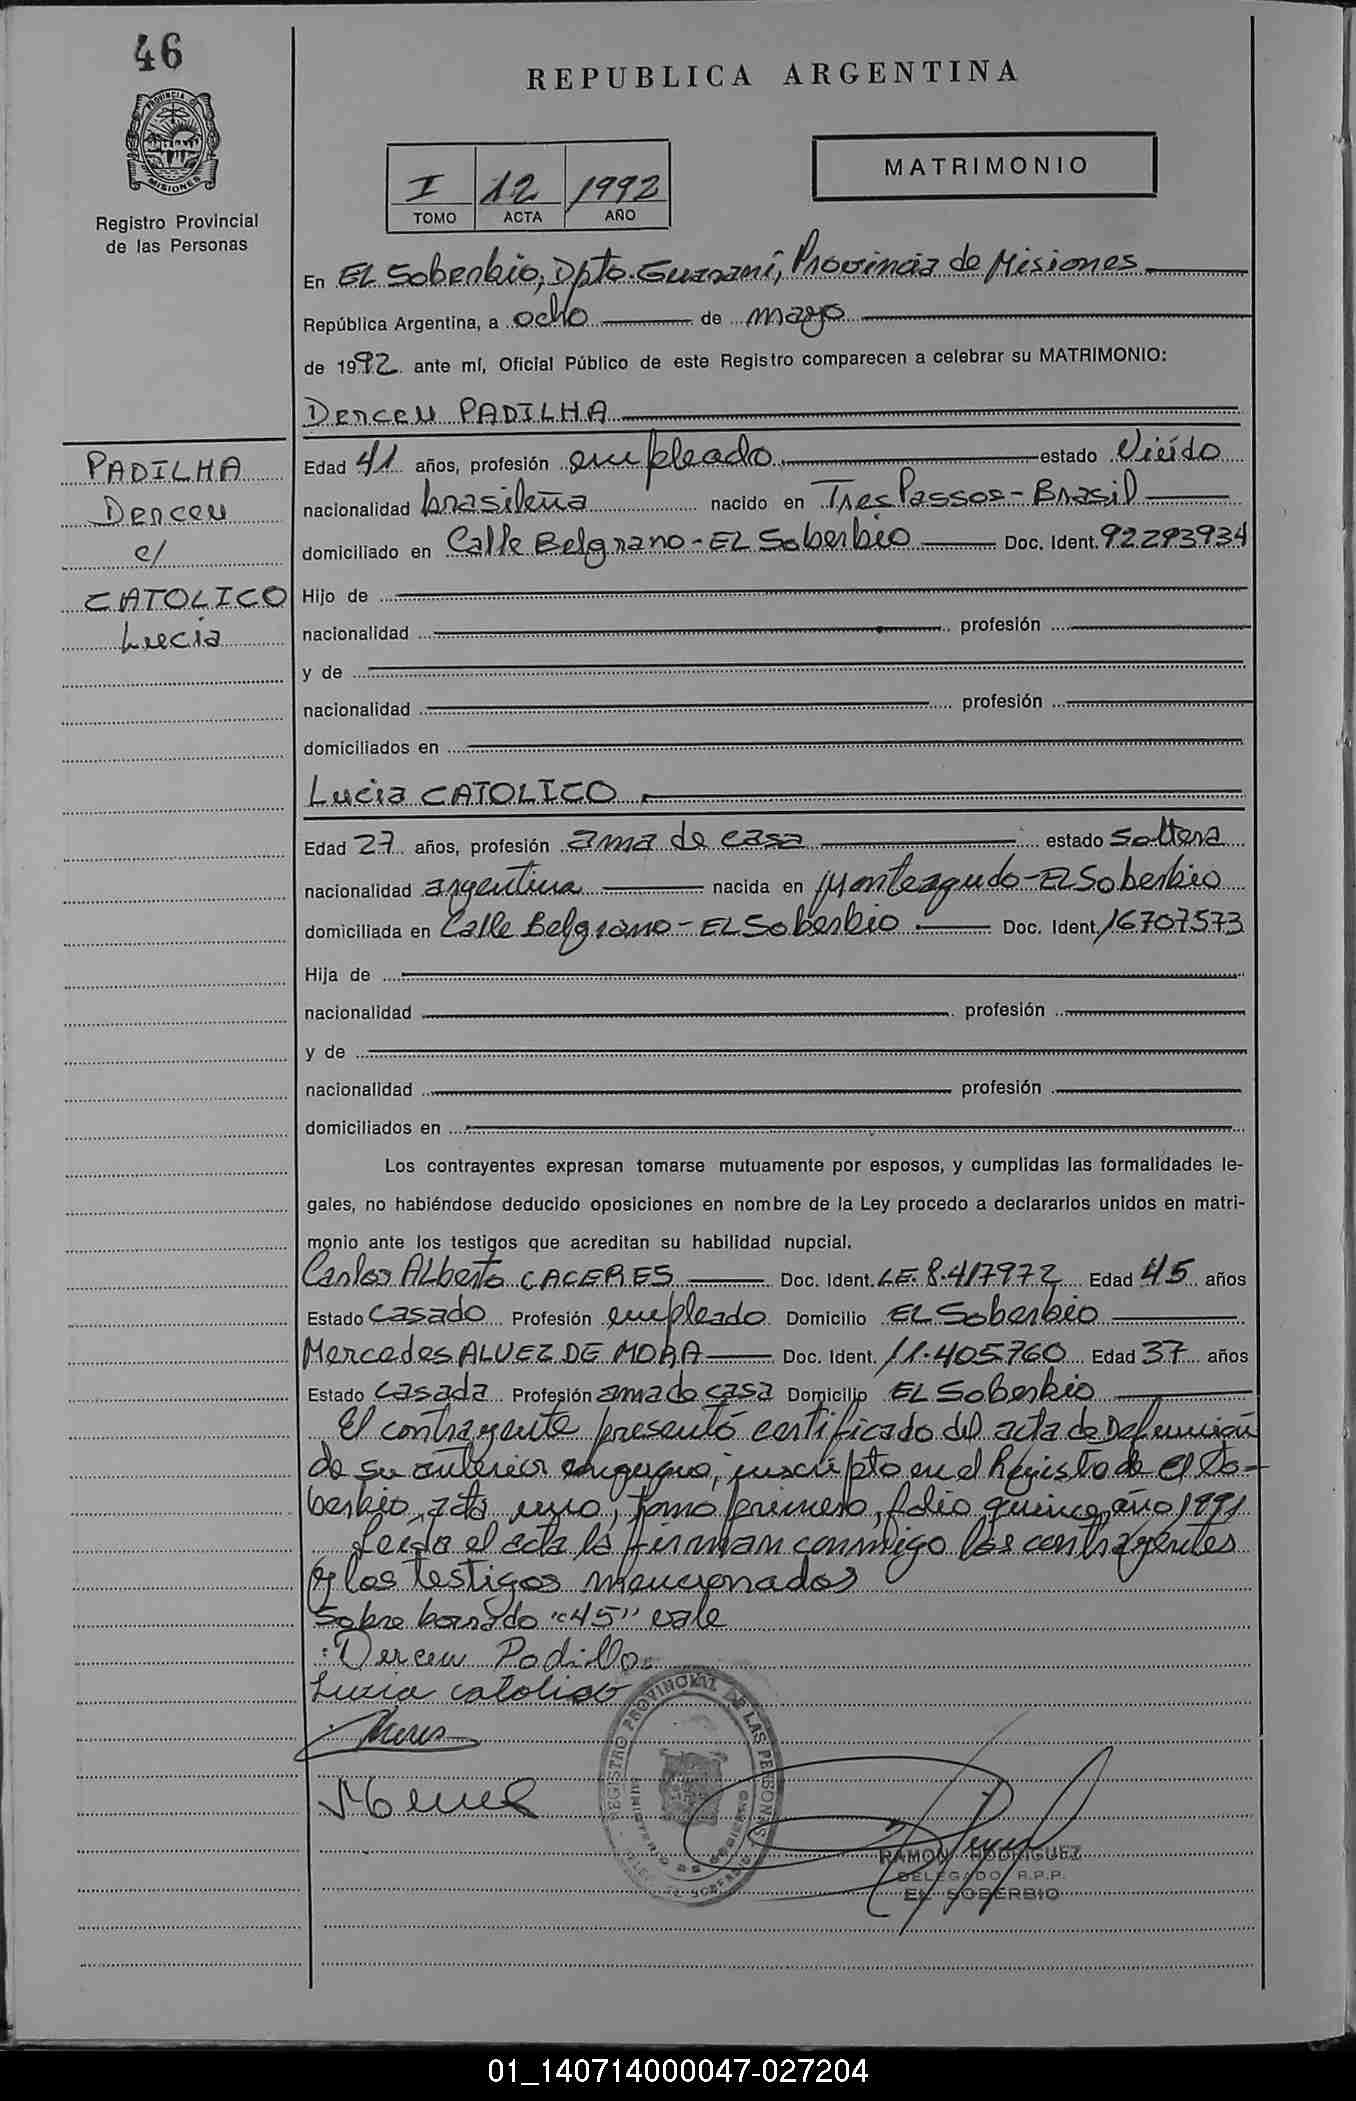 46
PROVINCIA DE
MISIONES
Registro Provincial
de las Personas
REPUBLICA ARGENTINA
I 12 1992
TOMO ACTA AÑO
MATRIMONIO
En El Soberbio, Dpto. Guaraní, Provincia de Misiones
República Argentina, a ocho de mayo
de 1992 ante mí, Oficial Público de este Registro comparecen a celebrar su MATRIMONIO:
Derceu PADILHA
PADILHA
Derceu
c/
CATOLICO
Lucia
Edad 41 años, profesión empleado estado Viúdo
nacionalidad brasileña nacido en Tres Passos - Brasil
domiciliado en Calle Belgrano - El Soberbio Doc. Ident. 92.293934
Hijo de
nacionalidad profesión
y de
nacionalidad profesión
domiciliados en
Lucia CATOLICO
Edad 27 años, profesión ama de casa estado soltera
nacionalidad argentina nacida en Monteagudo - El Soberbio
domiciliada en Calle Belgrano - El Soberbio Doc. Ident. 16707573
Hija de
nacionalidad profesión
y de
nacionalidad profesión
domiciliados en
Los contrayentes expresan tomarse mutuamente por esposos, y cumplidas las formalidades le-
gales, no habiéndose deducido oposiciones en nombre de la Ley procedo a declararlos unidos en matri-
monio ante los testigos que acreditan su habilidad nupcial.
Carlos Alberto CACERES Doc. Ident. L.E. 8.417972 Edad 45 años
Estado casado Profesión empleado Domicilio El Soberbio
Mercedes ALVEZ DE MORA Doc. Ident. 11.405760 Edad 37 años
Estado casada Profesión ama de casa Domicilio El Soberbio
El contrayente presentó certificado del acta de Defunción
de su anterior conyugue, inscripto en el Registro de El So-
berbio, acta uno, tomo primero, folio quince, año 1991
Leida el acta la firman conmigo los contrayentes
y los testigos mencionados
Sobre borrado "45" vale
Derceu Padilha
Lucia catolico
REGISTRO PROVINCIAL DE LAS PERSONAS
MINISTERIO DE GOBIERNO
RAMON RODRIGUEZ
DELEGADO R.P.P.
EL SOBERBIO
01_140714000047-027204